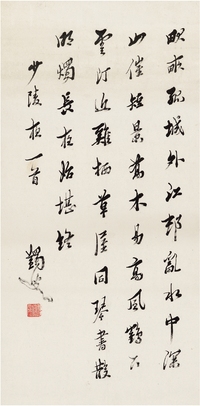 畎畝孤城外江邨亂水中深
山催短景喬木易高風鶴下
雲汀近雞栖草屋同琴書散
明燭長夜始堪終
少陵夜一首
蠲叟